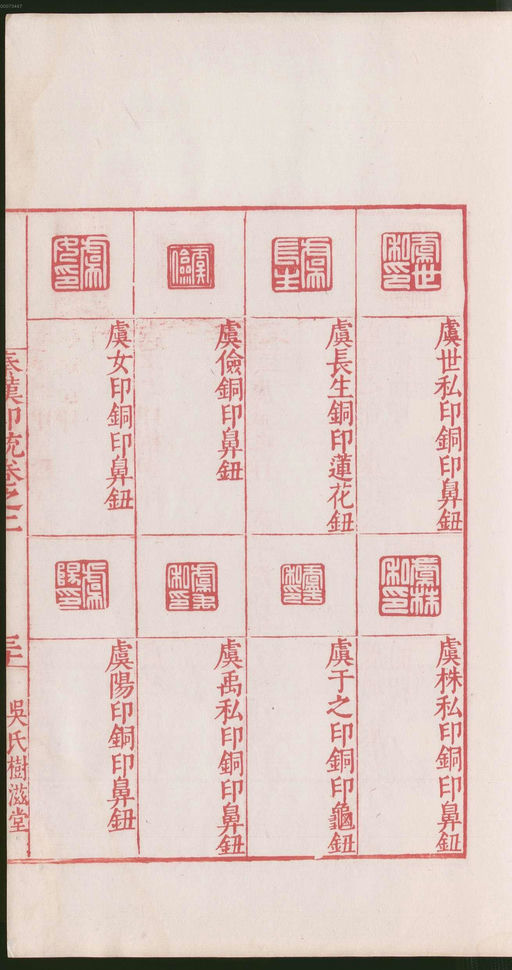 虞世私印銅印鼻鈕
虞長生銅印蓮花鈕
虞儉銅印鼻鈕
虞女印銅印鼻鈕
虞株私印銅印鼻鈕
虞于之印銅印龜鈕
虞禹私印銅印鼻鈕
虞陽印銅印鼻鈕
秦漢印統卷之二
吳氏樹滋堂
00073447